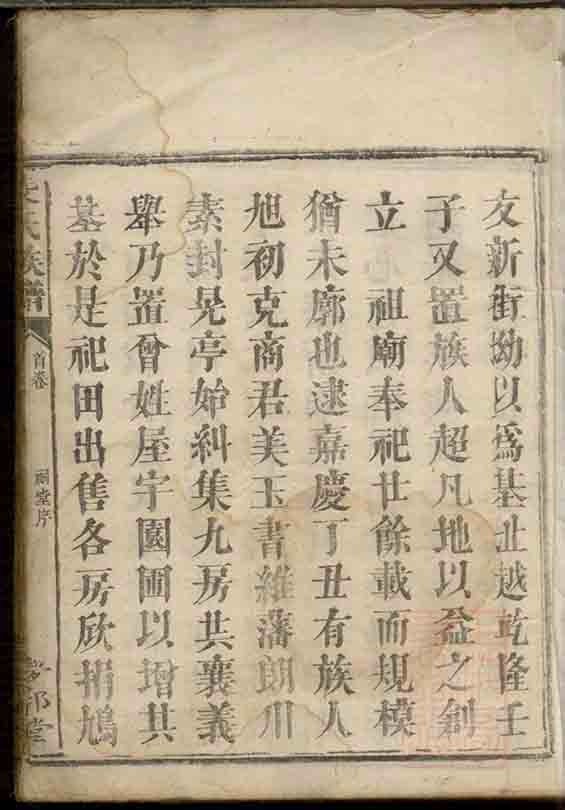 友新街坳以爲基止越乾隆壬
子又置族人超凡地以益之創
立 祖廟奉祀廿餘載而規模
猶未廓也逮嘉慶丁丑有族人
旭初克商君美玉書維藩朗川
素封晃亭始糾集九房共襄義
舉乃置曾姓屋宇園圃以增其
基於是祀田出售各房欣捐鳩
氏族譜
首卷
祠堂序
堂